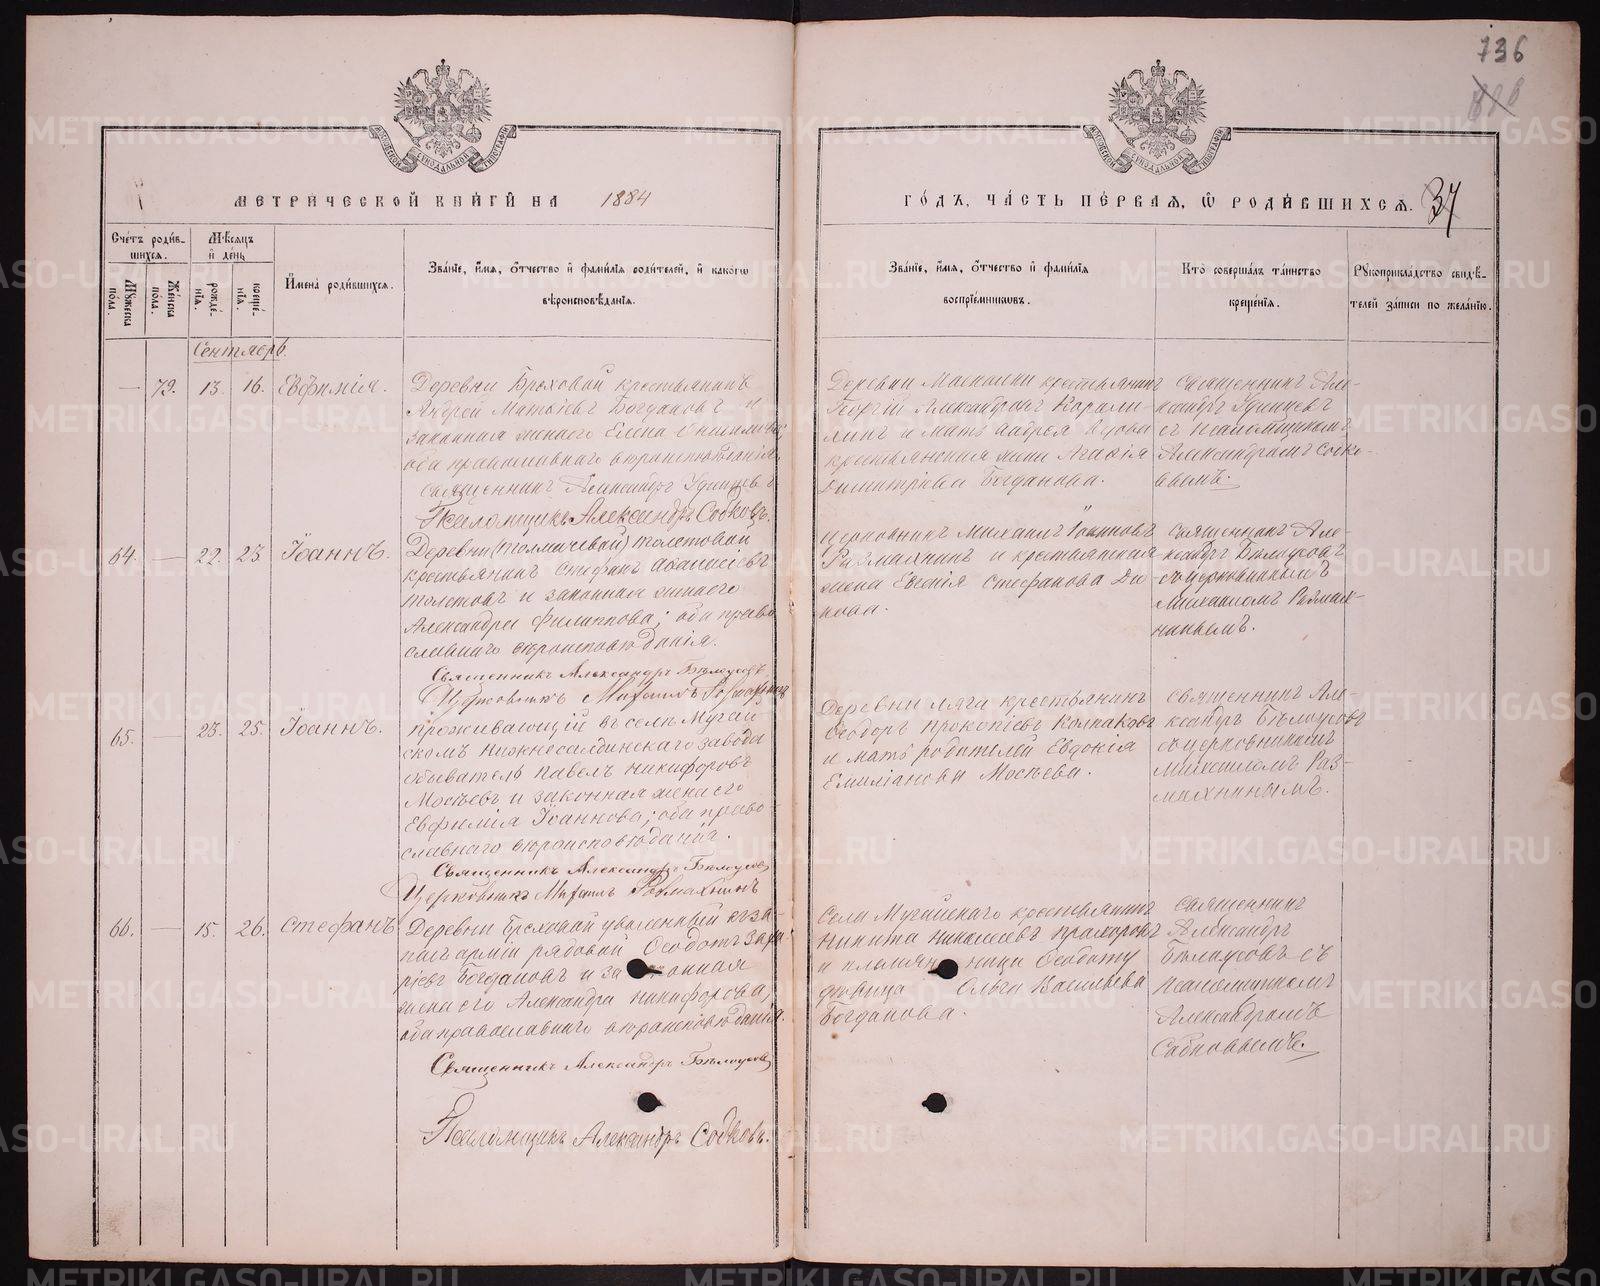 136
МЕТРИЧЕСКОЙ КНИГИ НА 1884
ГОДЪ, ЧАСТЬ ПЕРВАЯ, Ѡ РОДИВШИХСЯ. 37
Счетъ родив-
шихся.
Мѣсяцъ
и день
Мужеска
пола.
Женска
пола.
рожде-
нія.
креще-
нія.
Имена родившихся.
Званіе, имя, отчество и фамилія родителей, и какогѡ
вѣроисповѣданія.
Званіе, имя, отчество и фамилія
воспріемниковъ.
Кто совершалъ таинство
крещенія.
Рукоприкладство свидѣ-
телей записи по желанію.
Сентябрь.
— 79. 13. 16. Евфимія.
Деревни Бреховой крестьянинъ
Андрей Матѳіевъ Богдановъ и
законная жена его Елена
оба православнаго вѣроисповѣданія
Священникъ Александръ Удинцевъ
Псаломщикъ Александръ Собковъ.
крестьянинъ
Георгій Александровъ
и мать Андрея
крестьянская жена Агафія
Димитріева Богданова.
Священникъ Але-
ксандръ Удинцевъ
съ псаломщикомъ
Александромъ Собко-
вымъ.
64. — 22. 23. Іоаннъ.
Деревни (Толмачевой) Толстовой
крестьянинъ Стефанъ Аѳанасіевъ
Толстовъ и законная жена его
Александра Филиппова; оба право
славнаго вѣроисповѣданія.
Священникъ Александръ Бѣлоусовъ
Церковникъ Михаилъ Размахнинъ
Церковникъ Михаилъ Іоанновъ
Размахнинъ и крестьянская
жена Евгенія Стефанова
Священникъ Але-
ксандръ Бѣлоусовъ
съ церковникомъ
Михаиломъ Размах-
нинымъ.
65. — 23. 25. Іоаннъ.
Проживающій въ селѣ Мугай-
скомъ Нижнесалдинскаго завода
обыватель Павелъ Никифоровъ
Мосѣевъ и законная жена его
Евфимія Іоаннова; оба право
славнаго вѣроисповѣданія.
Священникъ Александръ Бѣлоусовъ
Церковникъ Михаилъ Размахнинъ
Деревни Ляга крестьянинъ
Ѳеодоръ Прокопіевъ Колпаковъ
и мать родителей Евдокія
Емиліанова Мосѣева.
Священникъ Але-
ксандръ Бѣлоусовъ
съ церковникомъ
Михаиломъ Раз-
махнинымъ.
66. — 15. 26. Стефанъ
Деревни Бреховой уволенный въ за-
пасъ арміи рядовой Ѳеодотъ Заха
ріевъ Богдановъ и законная
жена его Александра Никифорова;
оба православнаго вѣроисповѣданія.
Священникъ Александръ Бѣлоусовъ
Псаломщикъ Александръ Собковъ.
Села Мугайскаго крестьянинъ
Никита Николаевъ Прохоровъ
и племянница Ѳеодоту
дѣвица Ольга Васильева
Богданова.
Священникъ
Александръ
Бѣлоусовъ съ
псаломщикомъ
Александромъ
Собковымъ.
METRIKI.GASO-URAL.RU